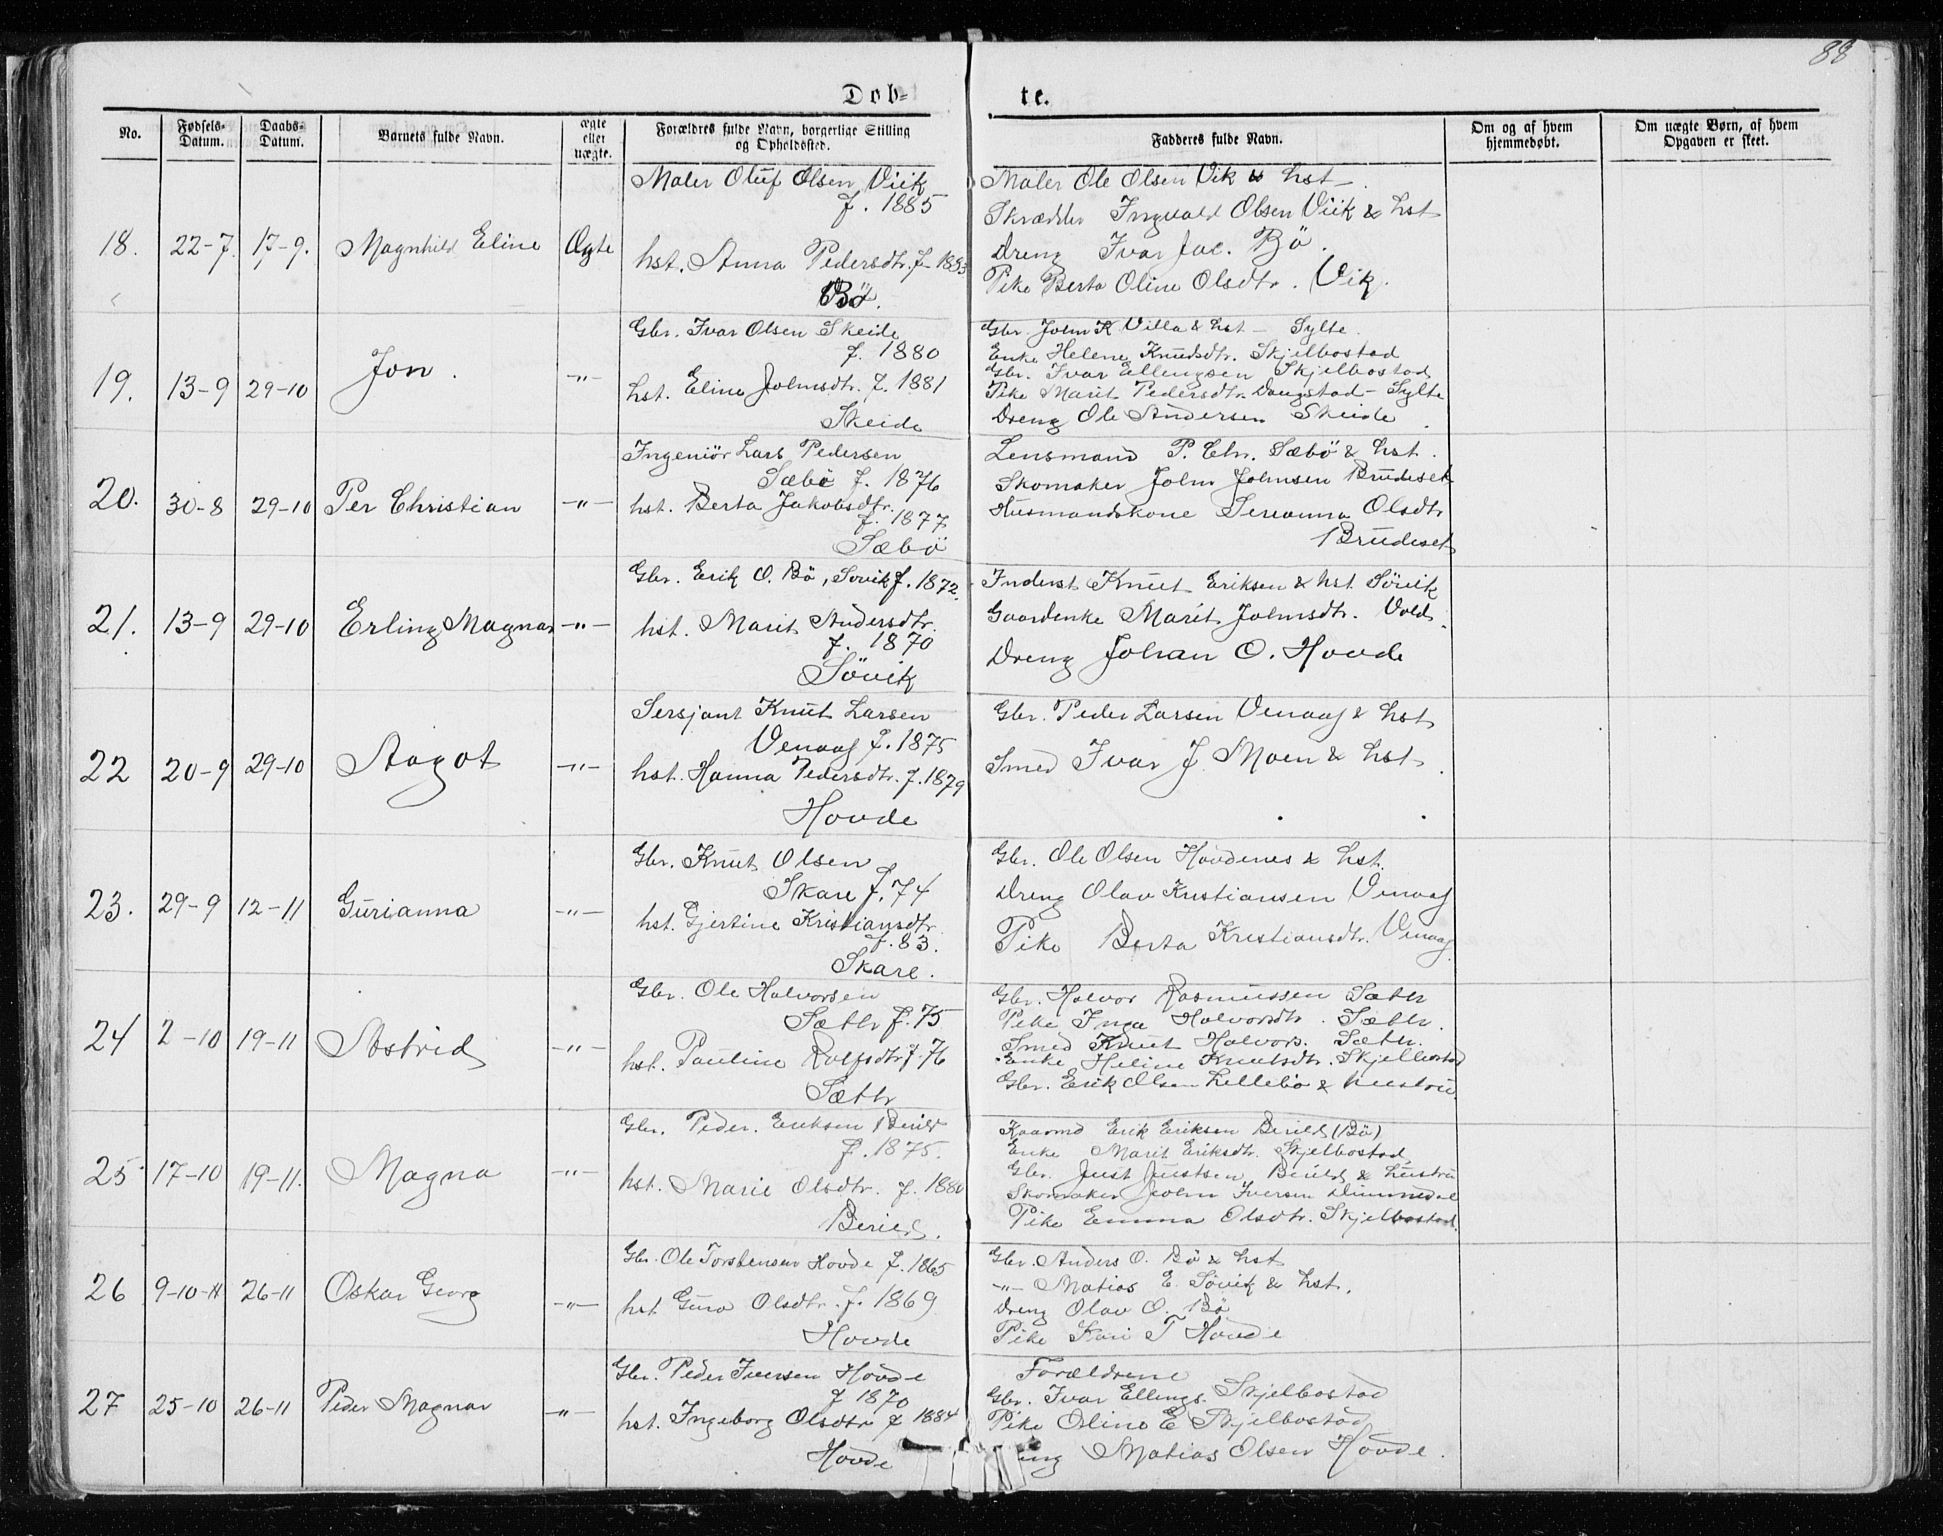 88
Døb- te.
No. Fødsels-Datum. Daabs-Datum. Barnets fulde Navn. ægte eller uægte. Forældres fulde Navn, borgerlige Stilling og Opholdssted. Fadderes fulde Navn. Om og af hvem hjemmedøbt. Om uægte Børn, af hvem Opgaven er skeet.
18. 22-7. 17-9. Magnhild Eline Ægte
Maler Oluf Olsen Viik
f. 1885
hst. Anna Pedersdtr. f. 1883
Bø.
Maler Ole Olsen Vik & hst
Skrædder Ingvald Olsen Viik & hst
Dreng Ivar Jac. Bö.
Pike Berta Oline Olsdtr. Vik.
19. 13-9 29-10 Jon. -"-
Gbr. Ivar Olsen Skeide
f. 1880
hst. Eline Johnsdtr. f. 1881
Skeide
Gbr John K Villa & hst - Sylte.
Enke Helene Knudsdtr. Skjelbostad
Gbr. Ivar Ellengsen Skjelbostad
Pike Marit Pedersdtr. Daugstad - Sylte
Dreng Ole Andersen Skeide
20. 30-8 29-10 Per Christian -"-
Ingeniör Lars Pedersen
Sæbö f. 1876
hst. Berta Jakobsdtr.
f. 1877
Sæbö
Lensmand P. Chr. Sæbö & hst.
Skomaker John Johnsen Brudeset
Husmandskone Serianna Olsdtr
Brudeset
21. 13-9 29-10 Erling Magnar -"-
Gbr. Erik O. Bö, Sövik f. 1872.
hst. Marit Andersdtr.
f. 1870
Sövik
Inderst Knut Eriksen & hst Sövik
Gaardenke Marit Johnsdtr. Vold.
Dreng Johan O. Hovde
22 20-9 29-10 Aagot -"-
Sersjant Knut Larsen
Venaas f. 1875
hst. Hanna Pedersdtr. f. 1879
Hovde
Gbr. Peder Larsen Venaas & hst
Smed Ivar J. Moen & hst.
23. 29-9 12-11 Gurianna -"-
Gbr. Knut Olsen
Skare f. 74
hst. Gjertine Kristiansdtr.
f. 83.
Skare.
Gbr. Ole Olsen Hovdenes & hst.
Dreng Olav Kristiansen Venaas
Pike Berta Kristiansdtr. Venaas
24 2-10 19-11 Astrid -"-
Gbr. Ole Halvorsen
Sætre f. 75
hst. Pauline Rolfsdtr f. 76
Sætre
Gbr. Halvor Rasmussen Sætre
Pike Inga Halvorsdtr. Sætre.
Smed Knut Halvors. Sætre.
Enke Heline Knutsdtr. Skjelbostad
Gbr. Erik Olsen Lillebö & hustru.
25 17-10 19-11. Magna -"-
Gbr. Peder. Eriksen Berild
f. 1875.
hst. Marie Olsdtr. f. 1880
Berild.
Kaarmd Erik Eriksen Berild (Bö)
Enke Marit Eriksdtr. Skjelbostad
Gbr. Just Justsen Berild & hustru
Skomaker John Iversen Dimmedal
Pike Emma Olsdtr. Skjelbostad.
26 9-10-11 26-11 Oskar Georg -"-
Gbr. Ole Torstensen Hovde f. 1865
hst Guro Olsdtr. f. 1869.
Hovde
Gbr. Anders O. Bö & hst
-"- Matias E. Sövik & hst.
Dreng Olav O. Bö
Pike Kari T Hovde
27 25-10 26-11 Peder Magnar -"-
Gbr. Peder Iversen Hovde
f 1870
hst. Ingeborg Olsdtr f 1884
Hovde
Forældrene
Gbr. Ivar Ellings. Skjelbostad
Pike Oline E Skjelbostad
ng Matias Olsen Hovde.